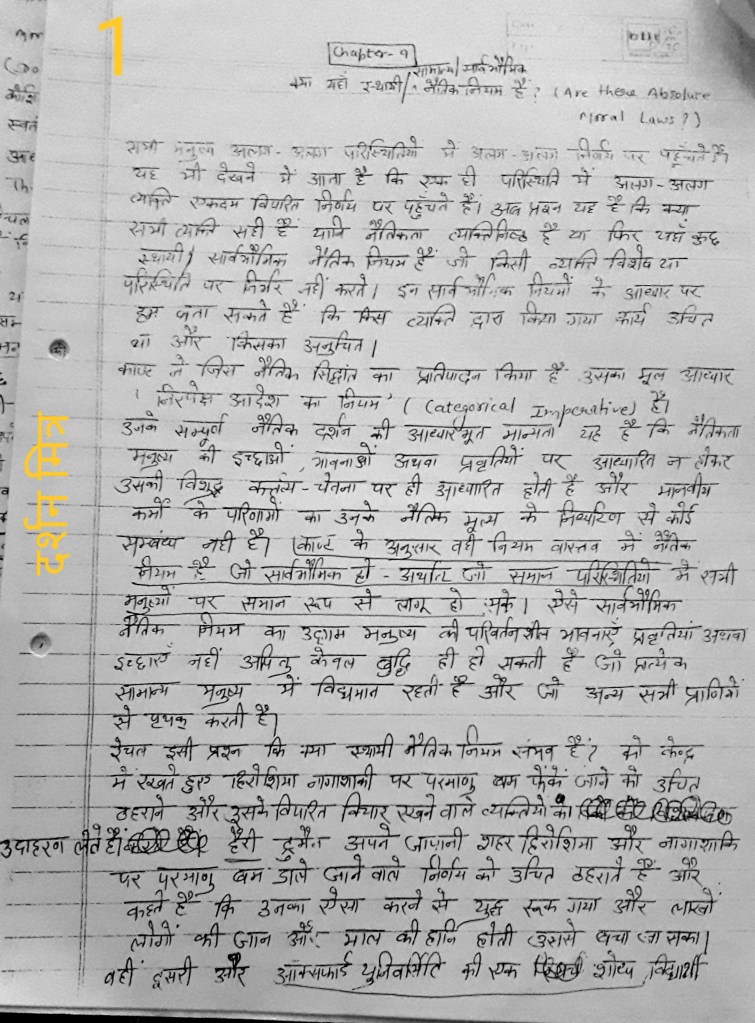 1
Chapter-9
सामान्य/सार्वभौमिक
क्या यहाँ स्थायी/नैतिक नियम हैं? (Are these Absolute
Moral Laws?)
सभी मनुष्य अलग-अलग परिस्थितियों में अलग-अलग निर्णय पर पहुँचते हैं।
यह भी देखने में आता है कि एक ही परिस्थिति में अलग-अलग
व्यक्ति एकदम विपरित निर्णय पर पहुँचते हैं। अब प्रश्न यह है कि क्या
सभी व्यक्ति सही हैं यानि नैतिकता व्यक्तिनिष्ठ है या फिर यहाँ कुछ
स्थायी/सार्वभौमिक नैतिक नियम हैं जो किसी व्यक्ति विशेष या
परिस्थिति पर निर्भर नहीं करते। इन सार्वभौमिक नियमों के आधार पर
हम बता सकते हैं कि किस व्यक्ति द्वारा किया गया कार्य उचित
था और किसका अनुचित।
काण्ट ने जिस नैतिक सिद्धांत का प्रतिपादन किया है उसका मूल आधार
'निरपेक्ष आदेश का नियम' (Categorical Imperative) है।
उनके सम्पूर्ण नैतिक दर्शन की आधारभूत मान्यता यह है कि नैतिकता
मनुष्य की इच्छाओं, भावनाओं अथवा प्रवृत्तियों पर आधारित न होकर
उसकी विशुद्ध कर्तव्य-चेतना पर ही आधारित होती है और मानवीय
कर्मों के परिणामों का उनके नैतिक मूल्य के निर्धारण से कोई
सम्बंध नहीं है। काण्ट के अनुसार वही नियम वास्तव में नैतिक
नियम है जो सार्वभौमिक हो - अर्थात जो समान परिस्थितियों में सभी
मनुष्यों पर समान रूप से लागू हो सके। ऐसे सार्वभौमिक
नैतिक नियम का उद्गम मनुष्य की परिवर्तनशील भावनाएँ प्रवृतियां अथवा
इच्छाएं नहीं अपितु केवल बुद्धि ही हो सकती है जो प्रत्येक
सामान्य मनुष्य में विद्यमान रहती है और जो अन्य सभी प्राणियों
से पृथक् करती है।
रेचल इसी प्रश्न कि क्या स्थायी नैतिक नियम संभव हैं? को केन्द्र
में रखते हुए हिरोशिमा नागाशाकी पर परमाणु बम फेंकें जाने को उचित
ठहराने और उसके विपरित विचार रखने वाले व्यक्तियों का
उदाहरण लेते हैं। हैरी ट्रुमैन अपने जापानी शहर हिरोशिमा और नागाशाकि
पर परमाणु बम डाले जाने वाले निर्णय को उचित ठहराते हैं और
कहते हैं कि उनका ऐसा करने से युद्ध रूक गया और लाखों
लोगों की जान और माल की हानि होती उससे बचा जा सका।
वहीं दूसरी और ऑक्सफार्ड युनिवर्सिटि की एक शोध विद्यार्थी
दर्शन मित्र